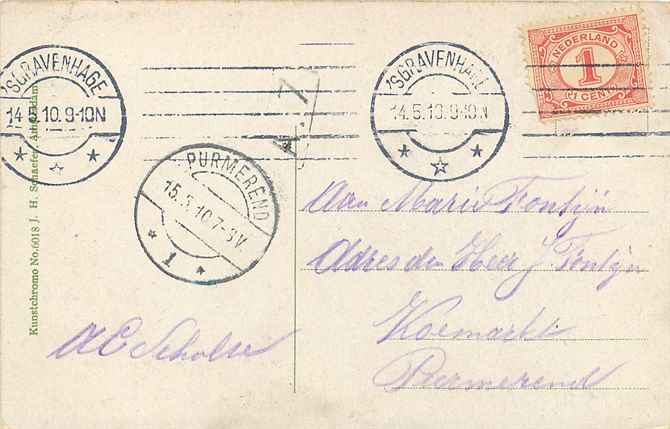 'SGRAVENHAGE
14.5.10.9-10N
'SGRAVENHAGE
14.5.10.9-10N
NEDERLAND
1
1 CENT
A.7
PURMEREND
15.5.10.7-8V.
1
Kunstchromo No.6018 J. H. Schaefer, Amsterdam
Aan Marie Fontijn
Adres den Heer J Fontijn
Koemarkt
Purmerend
A C Scholse